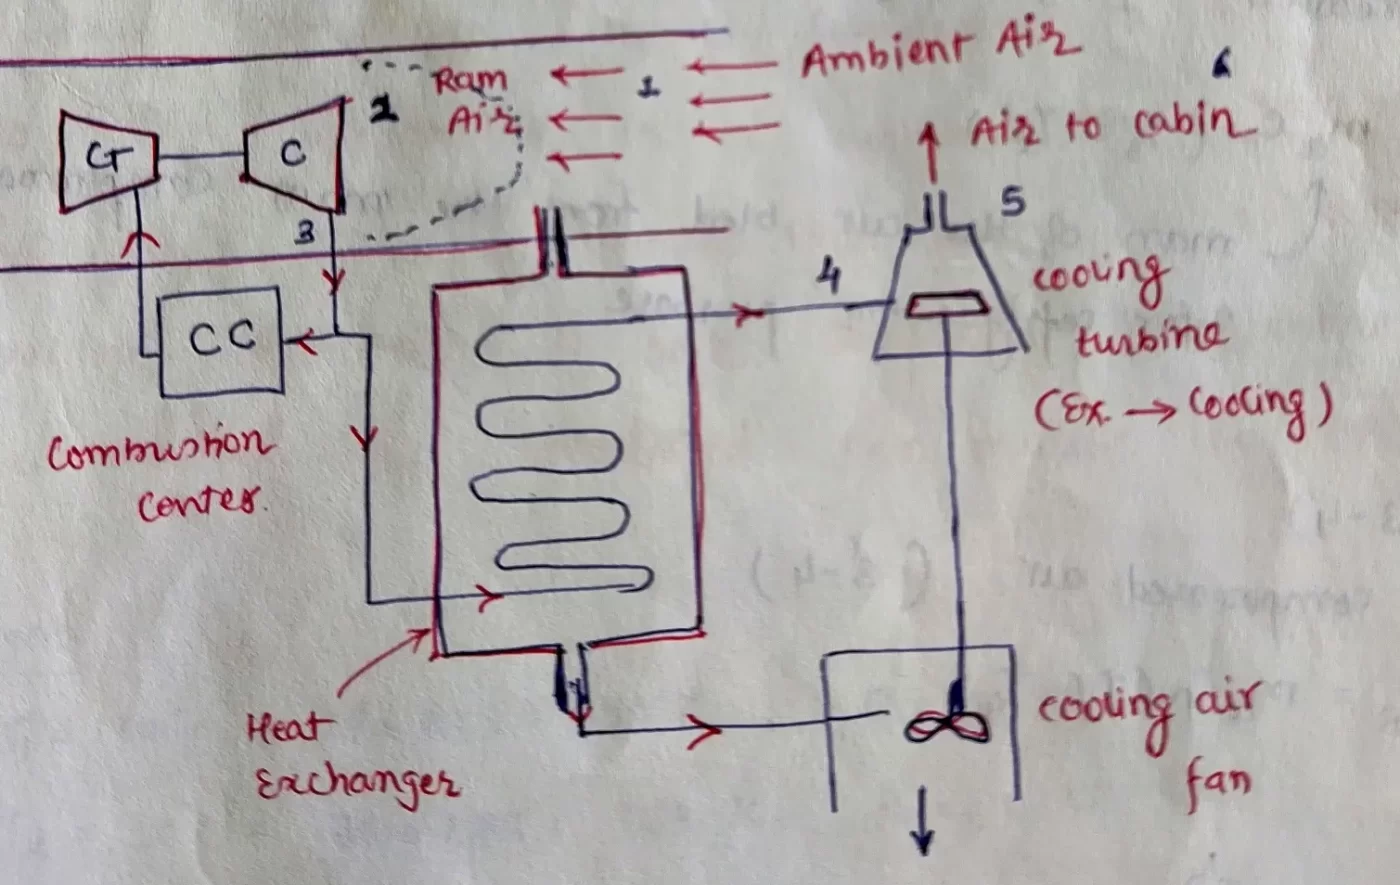 Ambient Air
Ram
Air
1
2
Air to cabin
6
GT
C
3
5
4
cooling
turbine
(Ex. → cooling)
CC
Combustion
center.
Heat
Exchanger
cooling air
fan